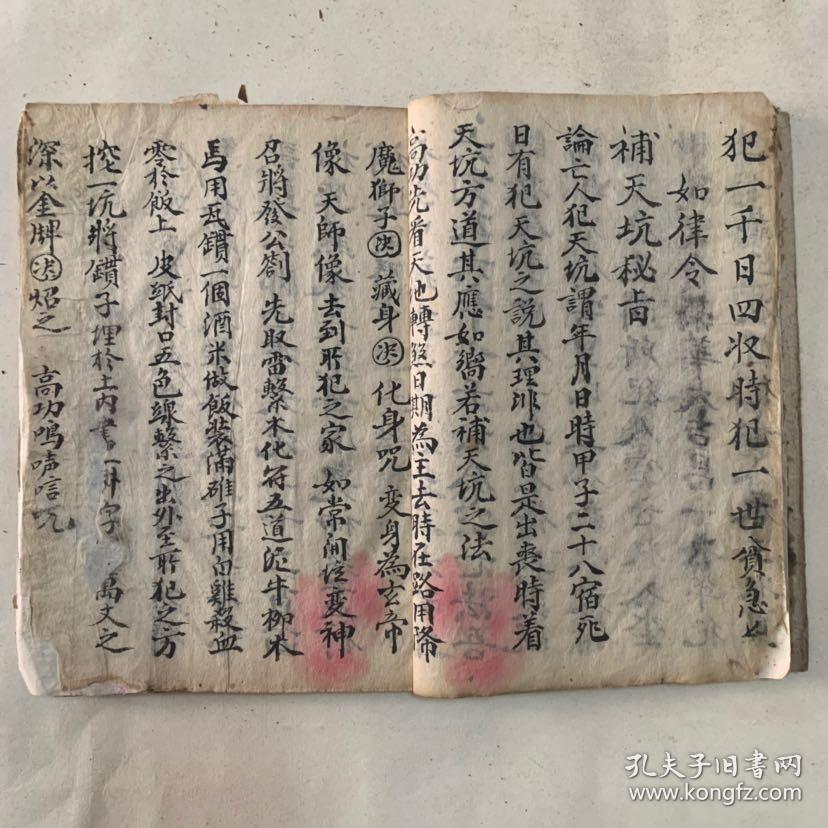 犯一千日四收時犯一世貧急
如律令
補天坑秘旨
論亡人犯天坑謂年月日時甲子二十八宿死
日有犯天坑之說其理非也皆是出喪時着
天坑方道其應如嚮若補天坑之法
高功先看天地轉煞日期為主去時在路用降
魔獅子決藏身決化身咒变身為玄帝
像天師像去到所犯之家如常间坛变神
召將發公劄先取雷擊木化符五道泥牛柳木
馬用瓦鑽一個酒米做飯装滿碓子用白雞殺血
零於飯上皮紙封口五色線繫之出外至所犯之方
挖一坑將鑽子埋於土内書一井字萬丈之
深以金牌決炤之高功鳴聲信咒
孔夫子旧书网
www.kongfz.com